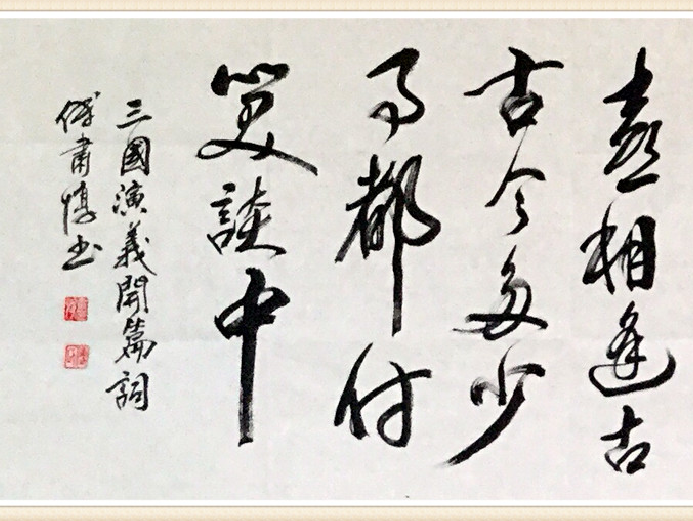 喜相逢古
古今多少
事都付
笑談中
三國演義開篇詞
傅肅惇书